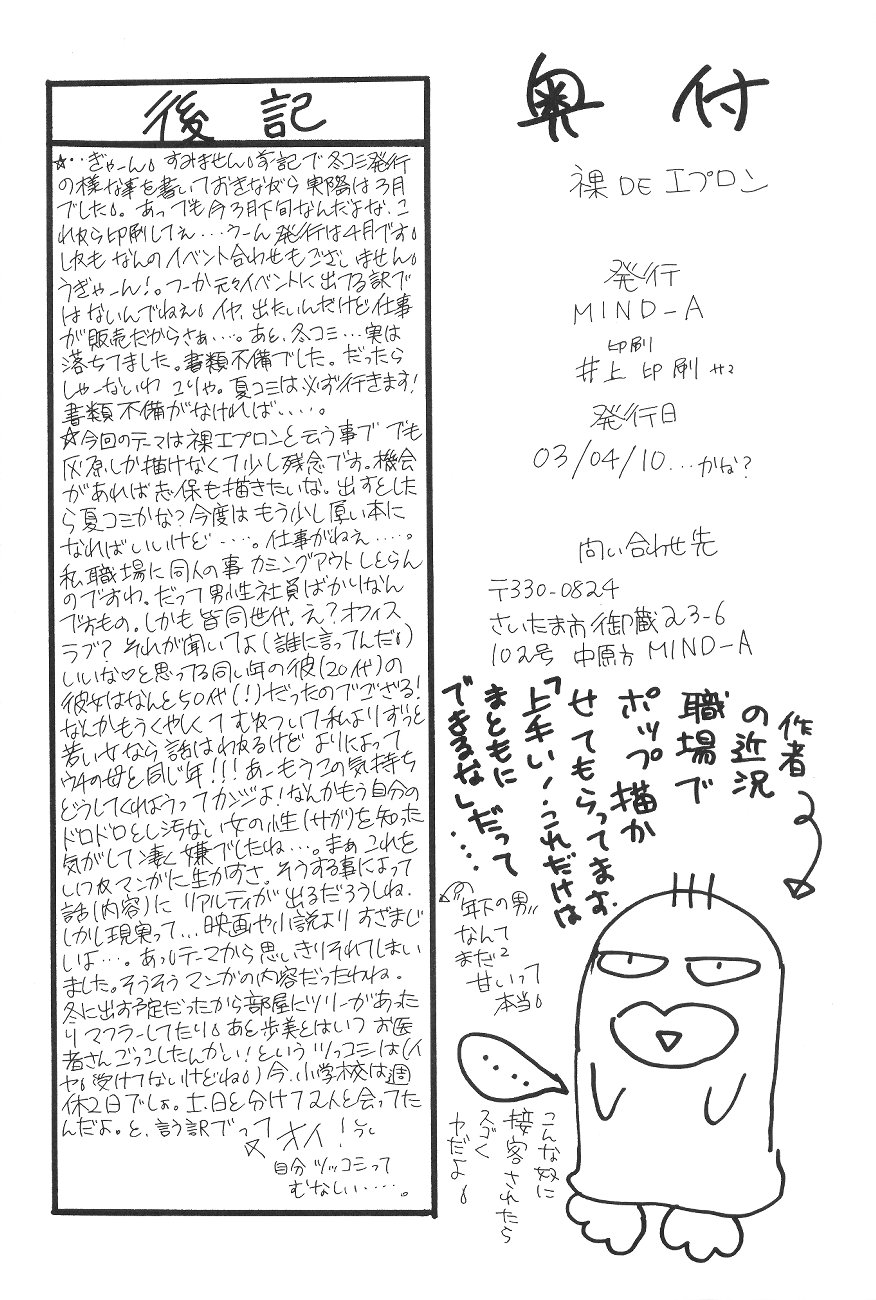 奥付
裸DEエプロン
発行
MIND-A
印刷
井上印刷
発行日
03/04/10…かな?
問い合わせ先
〒330-0824
さいたま市御蔵23-6
102号 中原方 MIND-A
作者
の近況
職場で
ポップ描か
せてもらってます。
「上手い!これだけは
まともに
できるな」だって
…
年下の男
なんて
まだ2
甘いって
本当
こんな奴に
接客されたら
スゴく
ヤだよ
後記
☆‥ぎゃーん。すみません。前記で冬コミ発行
の様な事を書いておきながら実際は3月
でした。あっでも今3月下旬なんだよな。こ
れから印刷してぇ…うーん発行は4月です。
しかもなんのイベント合わせもございません。
うぎゃーん!。つーか元々イベントに出てる訳で
はないんでねぇ。イヤ、出たいんだけど仕事
が販売だからさぁ…。あと、冬コミ…実は
落ちてました。書類不備でした。だったら
しゃーないわ こりゃ。夏コミは必ず行きます!
書類不備がなければ……。
☆今回のテーマは裸エプロンと云う事で でも
灰原しか描けなくて少し残念です。機会
があれば志保も描きたいな。出すとした
ら夏コミかな?今度はもう少し厚い本に
なればいいけど……。仕事がねぇ…。
私、職場に同人の事 カミングアウトしとらん
のですわ。だって男性社員ばかりなん
ですもの。しかも皆同世代。え?オフィス
ラブ?それが聞いてよ(誰に言ってんだ)
いいな♡と思ってる同い年の彼(20代)の
彼女はなんと50代(!)だったのでござる!
なんかもうくやしくてむかついて私よりずっと
若い女なら話はわかるけど よりによって
ウチの母と同じ年!!!あーもうこの気持ち
どうしてくれようってカンジよ!なんかもう自分の
ドロドロとし汚ない女の性(サガ)を知った
気がして凄く嫌でしたね…。まぁこれを
いつかマンガに生かすさ。そうする事によって
話(内容)に リアルティが出るだろうしね。
しかし現実って…映画や小説よりすざまじ
いよ…。あっテーマから思いきりそれてしまい
ました。そうそうマンガの内容だったわね。
冬に出す予定だったから部屋にツリーがあった
りマフラーしてたり。あと歩美とはいつ お医
者さんごっこしたんかい!というツッコミは(イ
ヤ。受けてないけどね。)今、小学校は週
休2日でしょ。土、日と分けて2人と会ってた
んだよ。と、言う訳でって
オイ!
自分ツッコミって
むなしい……。